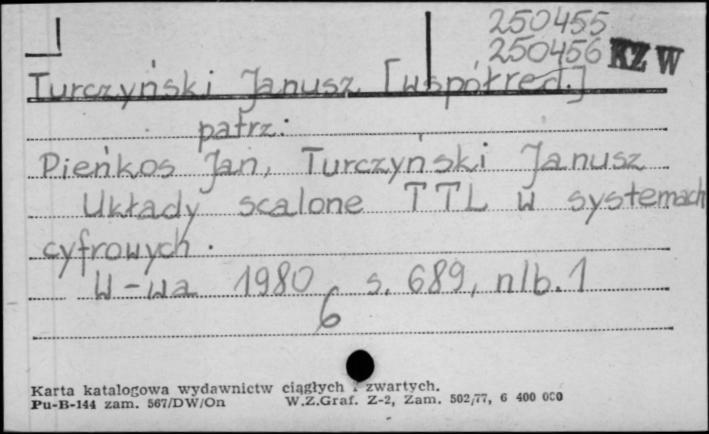 250455
250456 KZ W
Turczyński Janusz [współred.]
patrz:
Pieńkos Jan, Turczyński Janusz
Układy scalone TTL w systemach
cyfrowych.
W-wa 1980 s. 689, nlb. 1
6
Karta katalogowa wydawnictw ciągłych i zwartych.
Pu-B-144 zam. 567/DW/On W.Z.Graf. Z-2, Zam. 502/77, 6 400 000